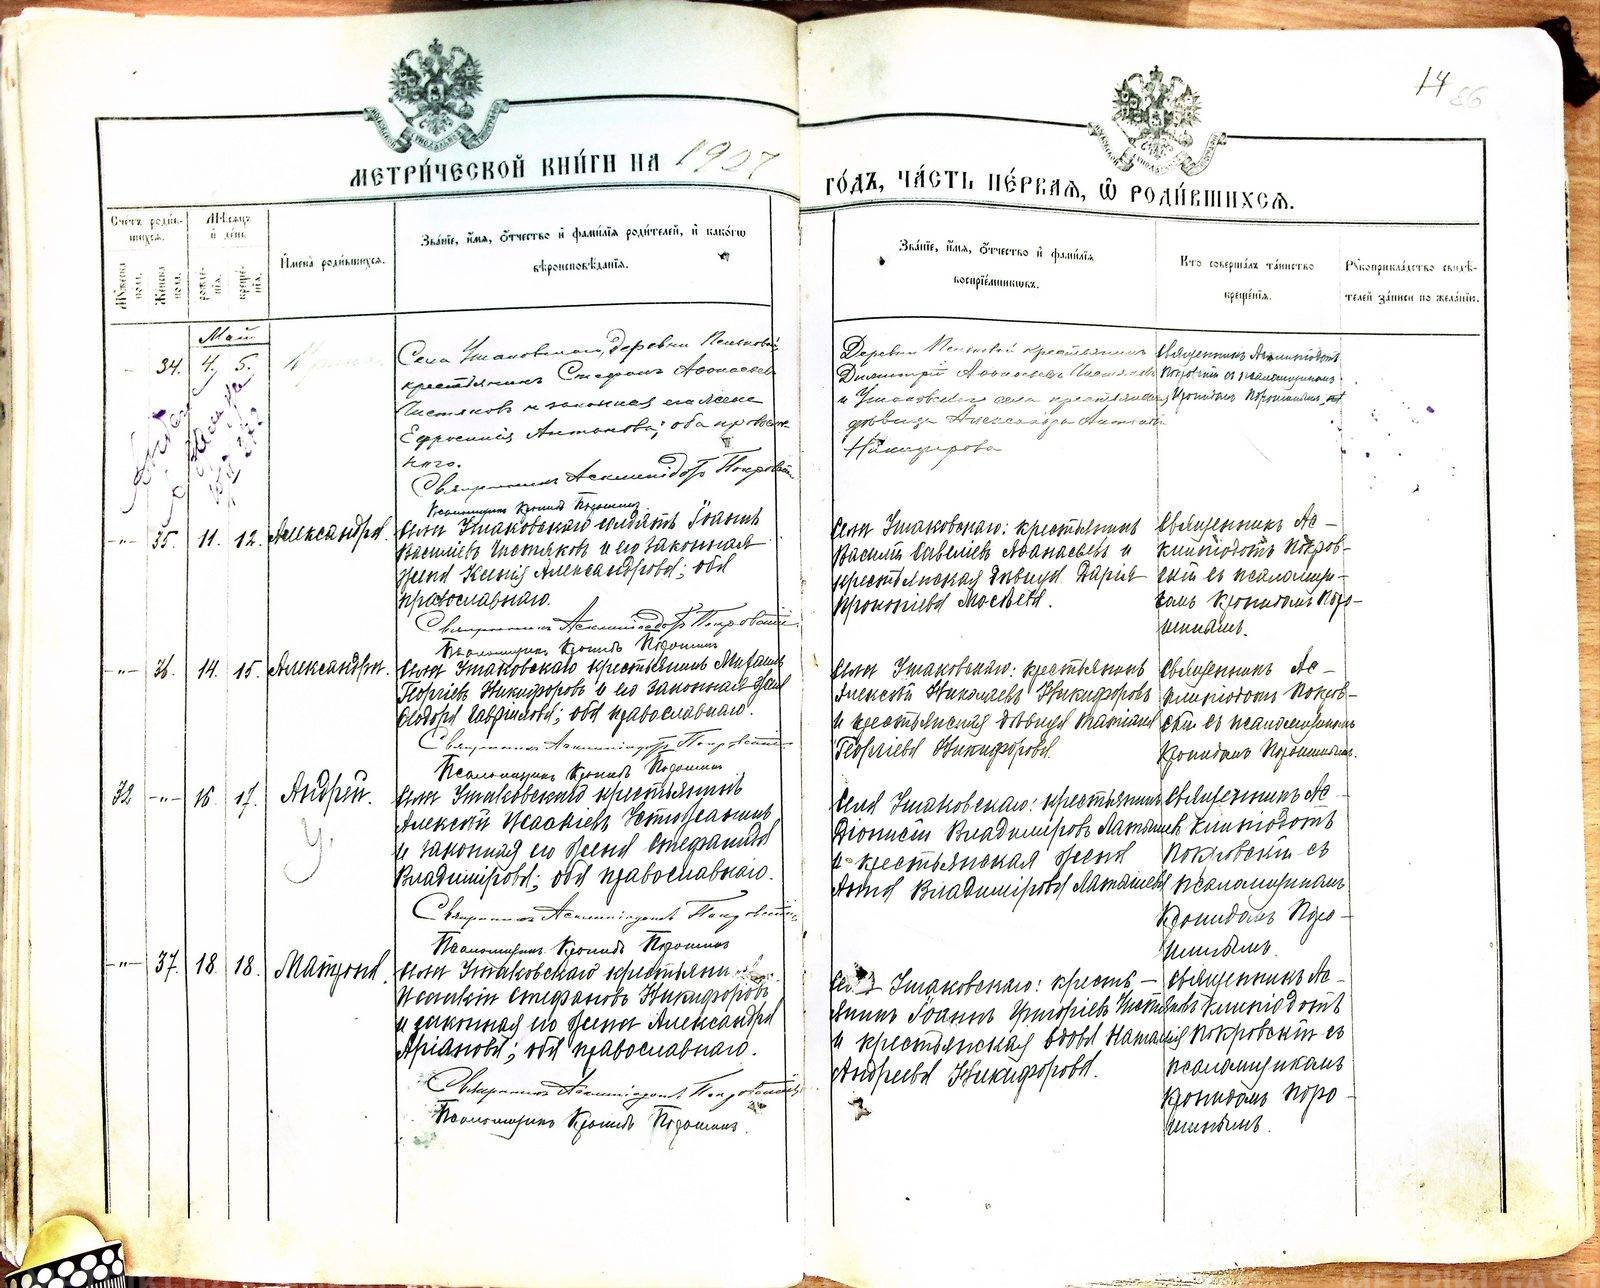 14
86
МЕТРИ́ЧЕСКОЙ КНИ́ГИ НА 1907
ГО́ДЪ, ЧА́СТЬ ПЕ́РВАЯ, Ѽ РОДИ́ВШИХСЯ.
Сче́тъ роди́в-
шихся.
Мужеска пола.
Женска пола.
Мѣсяцъ
и день.
рожде-
нія.
креще́-
нія.
Имена̀ роди́вшихся.
Зва́ніе, и́мя, о́тчество и фами́лія роди́телей, и како́гѡ
вѣроисповѣ́данія.
Зва́ніе, и́мя, о́тчество и фами́лія
воспріе́мникѡвъ.
Кто соверша́лъ та́инство
креще́нія.
Рукоприкла́дство свидѣ́-
телей за́писи по жела́нію.
Май
34. 4. 5.
Села Ушаковскаго, деревни
крестьянинъ Стефанъ Аѳанасьевъ
Чистяковъ и законная его жена
Ефросинія Антонова; оба православ-
наго.
Священникъ Асклипіодотъ Покровскій
Псаломщикъ Кронидъ Порошинъ
Деревни крестьянинъ
Димитрій Аѳанасьевъ Чистяковъ
и Ушаковскаго села крестьянская
дѣвица Александра
Никифорова
Священникъ Асклипіодотъ
Покровскій съ псаломщикомъ
Кронидомъ Порошинымъ
-"- 35. 11. 12. Александра.
Села Ушаковскаго солдатъ Іоаннъ
Васильевъ Чистяковъ и его законная
жена Ксенія Александрова; оба
православнаго.
Священникъ Асклипіодотъ Покровскій
Псаломщикъ Кронидъ Порошинъ
Села Ушаковскаго: крестьянинъ
Василій Савельевъ Аѳанасьевъ и
крестьянская дѣвица Дарія
Прокопіева Мосѣева.
Священникъ Ас-
клипіодотъ Покров-
скій съ псаломщи-
комъ Кронидомъ Поро-
шинымъ.
-"- 36. 14. 15. Александра.
Села Ушаковскаго крестьянинъ Михаилъ
Георгіевъ Никифоровъ и его законная жена
Ѳеодора Гавріилова; оба православнаго.
Священникъ Асклипіодотъ Покровскій
Псаломщикъ Кронидъ Порошинъ
Села Ушаковскаго: крестьянинъ
Алексій Николаевъ Никифоровъ
и крестьянская дѣвица
Георгіева Никифорова.
Священникъ Ас-
клипіодотъ Покров-
скій съ псаломщикомъ
Кронидомъ Порошинымъ.
32 -"- 16. 17. Андрей.
У.
Села Ушаковскаго крестьянинъ
Алексій Исаакіевъ
и законная его жена Стефанида
Владимірова; оба православнаго.
Священникъ Асклипіодотъ Покровскій
Псаломщикъ Кронидъ Порошинъ
Села Ушаковскаго: крестьянинъ
Діонисій Владиміровъ Латышевъ
и крестьянская жена
Анна Владимірова Латышева
Священникъ Ас-
клипіодотъ
Покровскій съ
псаломщикомъ
Кронидомъ Поро-
шинымъ.
-"- 37. 18. 18. Матрона.
Села Ушаковскаго крестьянинъ
Стефановъ Никифоровъ
и законная его жена Александра
Аріанова; оба православнаго.
Священникъ Асклипіодотъ Покровскій
Псаломщикъ Кронидъ Порошинъ.
Села Ушаковскаго: кресть-
янинъ Іоаннъ Григоріевъ Чистяковъ
и крестьянская вдова Наталія
Андреева Никифорова.
Священникъ Ас-
клипіодотъ
Покровскій съ
псаломщикомъ
Кронидомъ Поро-
шинымъ.